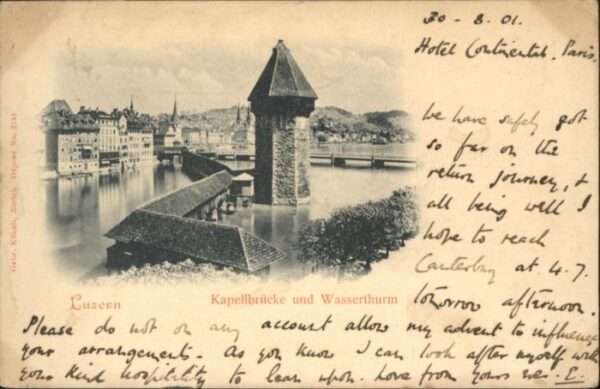 30 - 8. 01.
Hotel Continental. Paris.
We have safely got
so far on the
return journey, &
all being well I
hope to reach
Canterbury at 4-7.
tomorrow afternoon.
Please do not on any account allow my advent to influence
your arrangements. As you know I can look after myself with
your kind hospitality to lean upon. Love from yours ever
Luzern
Kapellbrücke und Wasserthurm
Gebr. Künzli, Zürich